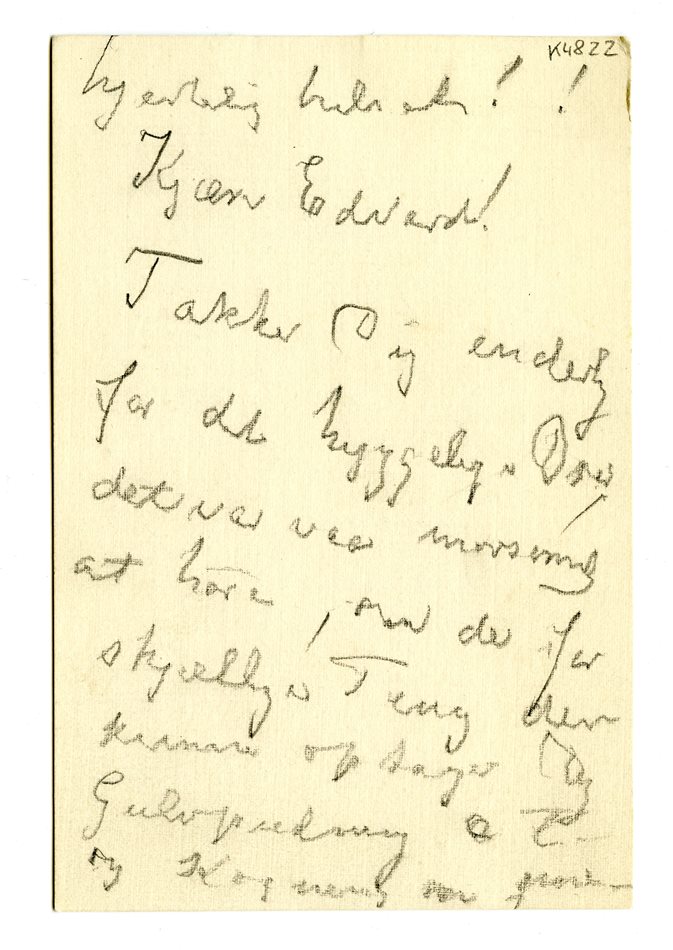 K4822
hjertelig hilsen! !
Kjære Edvard!
Takker Dig endelig
for det hyggelige Brev
det var morsomt
at høre, om de for
skjellige Ting der
kunne optage Dig
Gulvpudsning
og